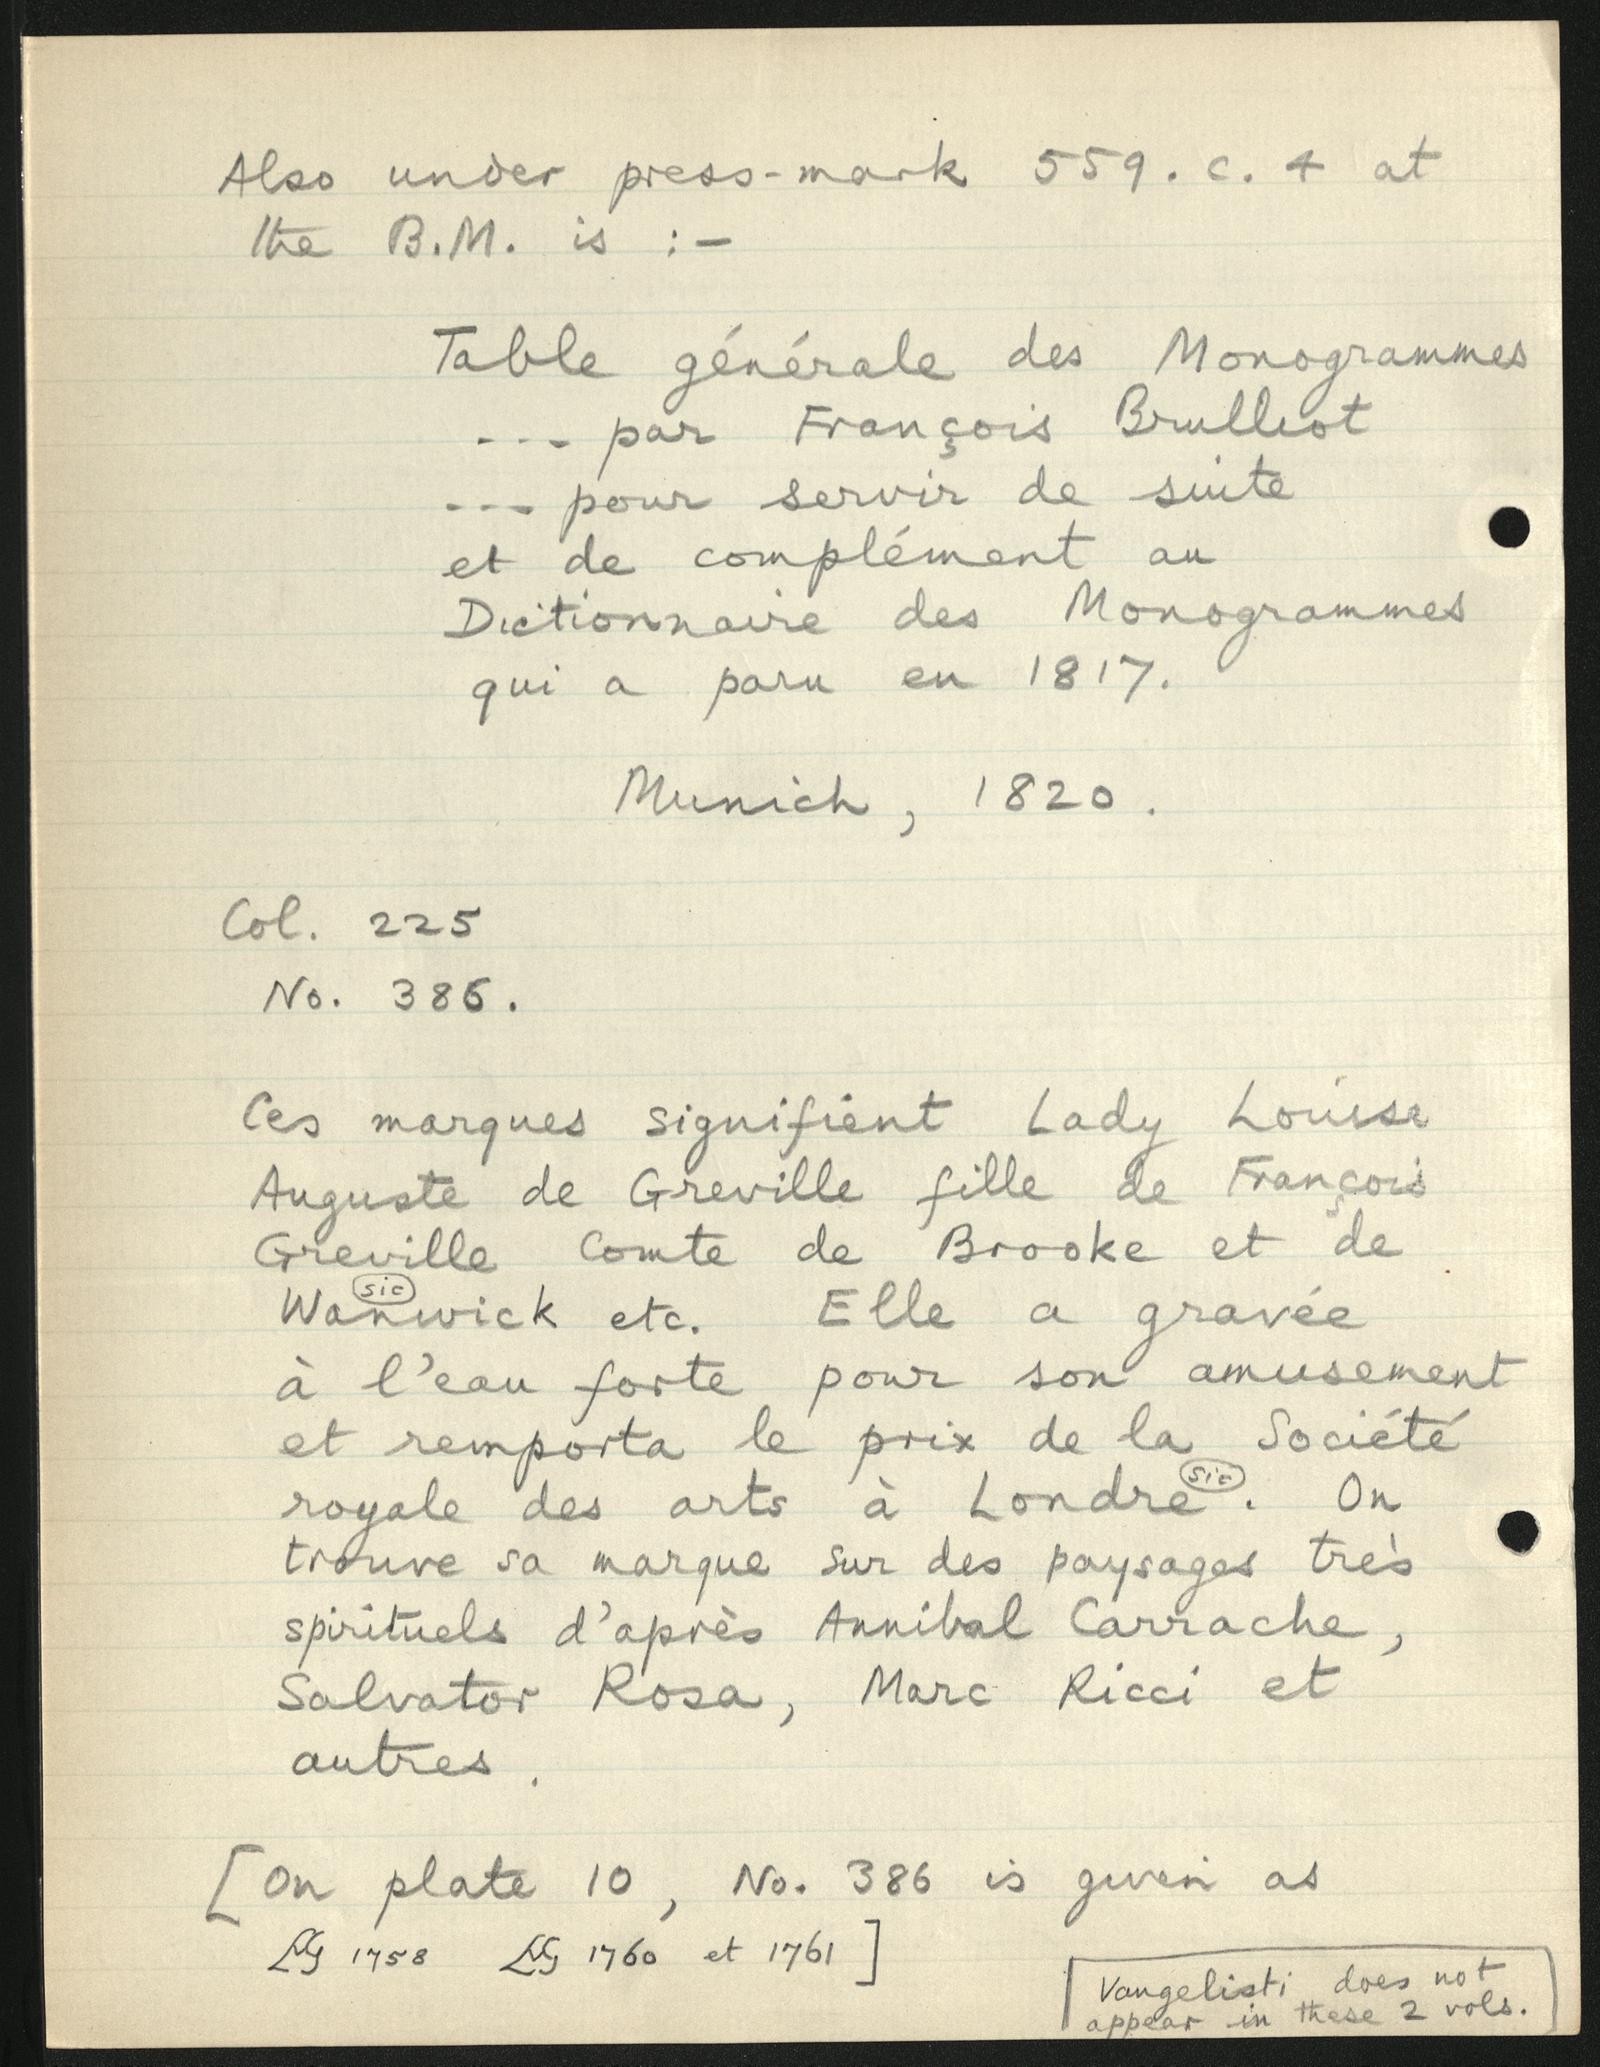 Also under press-mark 559.c.4 at
the B.M. is :-
Table générale des Monogrammes
--- par François Brulliot
--- pour servir de suite
et de complément au
Dictionnaire des Monogrammes
qui a paru en 1817.
Munich, 1820.
Col. 225
No. 386.
Ces marques signifient Lady Louise
Auguste de Greville fille de François
Greville Comte de Brooke et de
sic
Wanwick etc. Elle a gravée
à l'eau forte pour son amusement
et remporta le prix de la Société
sic
royale des arts à Londre. On
trouve sa marque sur des paysages très
spirituels d'après Annibal Carrache,
Salvator Rosa, Marc Ricci et
autres.
[On plate 10, No. 386 is given as
LG 1758 LG 1760 et 1761]
Vangelisti does not
appear in these 2 vols.